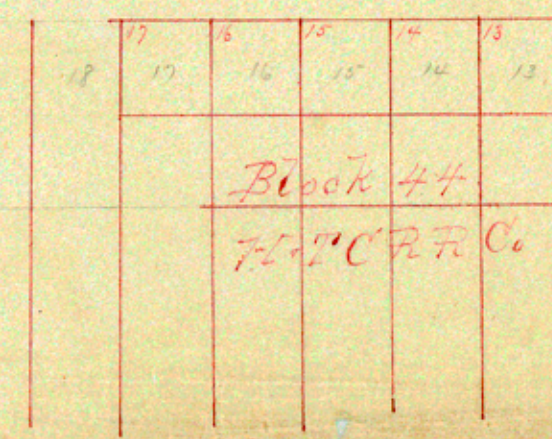 17 16 15 14 13
18 17 16 15 14 13
Block 44
H & T C R R Co